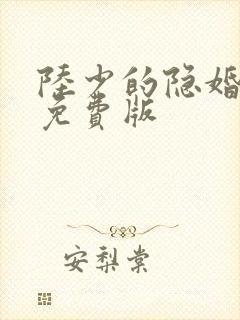 陸少的隐婚
免費版
安梨棠